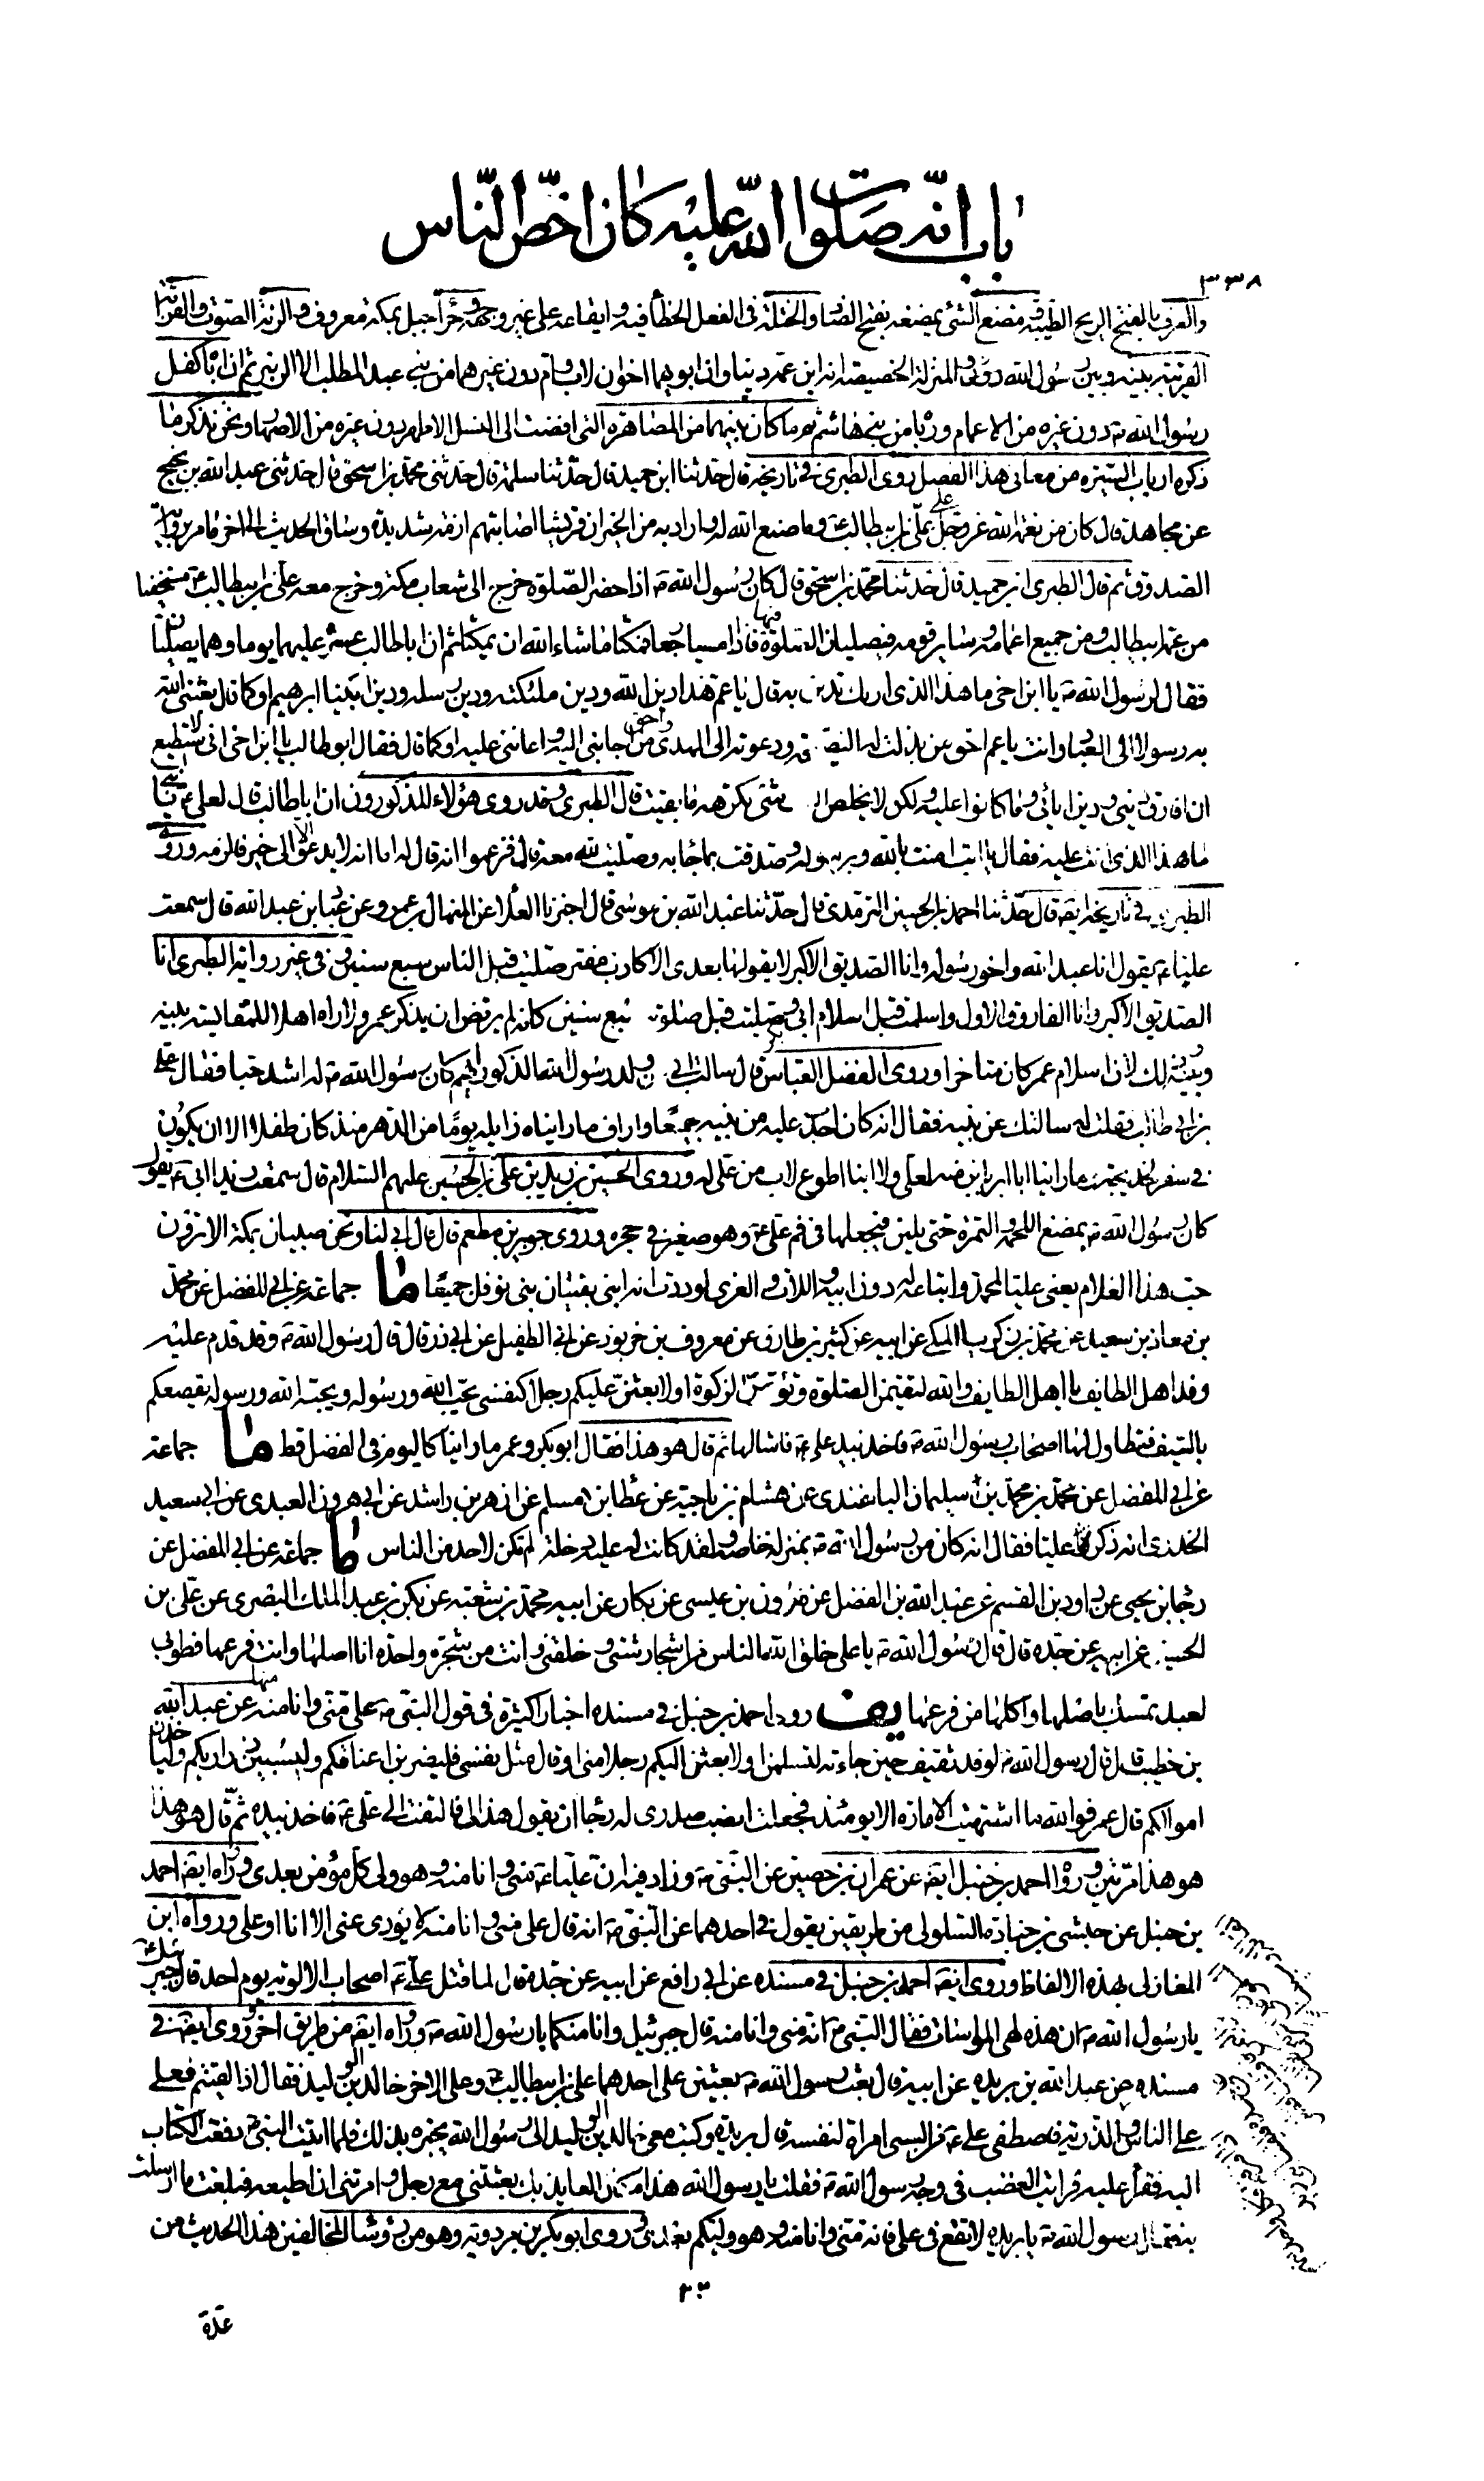 باب انّه صلوات اللّه عليه كان اخصّ النّاس
٣٣٨
والعرف بالفتح الريح الطيبة ومضغ الشئ يمضغه بفتح الضاد والخطلة فى الفعل الخطأ فيه وايقاعه على غير وجهه وحرّا جبل بمكة معروف والرنة الصوت والقرابة
القريبة بينه وبين رسول الله دون والمنزلة الخصيصة انه ابن عمه دنيا وان ابويهما اخوان لاب وام دون غيرهما من بنى عبد المطلب الا الزبير ثم ان اباه كفل
رسول الله ص دون غيره من الاعمام ورباه من بنى هاشم ثم ما كان بينهما من المصاهرة التى افضت الى النسل الاطهر دون غيره من الاصهار ونحن نذكر ما
ذكره ارباب السيرة من معانى هذا الفصل روى الطبرى فى تاريخه قال حدثنا ابن حميد قال حدّثنا سلمة قال حدثنى محمد بن اسحق قال حدثنى عبد الله بن نجيح
عن مجاهد قال كان من نعمة الله عز وجل على على بن ابيطالب ع وما صنع الله له واراد به من الخير ان قريشا اصابتهم ازمة شديدة وساق الحديث الى اخر ما مر برواية
الصدوق ثم قال الطبرى ابن حميد قال حدثنا محمد بن اسحق قال كان رسول الله ص اذا حضر الصّلوة خرج الى شعاب مكة وخرج معه على بن ابيطالب ع مستخفيا
من عمه ابيطالب ومن جميع اعمامه وساير قومه فيصليان الصلوة فيها فاذا امسيا رجعا فمكثا ما شاء الله ان يمكثا ثم ان اباطالب عثر عليهما يوما وهما يصليان
فقال لرسول الله ص يا ابن اخى ما هذا الذى اراك تدين به قال يا عم هذا دين الله ودين ملئكته ودين رسله ودين ابينا ابرهيم او كما قال بعثنى الله
به رسولا الى العباد وانت يا عم احق من بذلت له النصيحة ودعوته الى الهدى واحق من اجابنى اليه واعاننى عليه او كما قال فقال ابو طالب يا ابن اخى انى لا استطيع
ان افارق دينى ودين ابائى وما كانوا عليه ولكن لا يخلص اليك شئ تكرهه ما بقيت قال الطبرى وقد روى هؤلاء المذكورون ان اباطالب قال لعلى ع يا بنى
ما هذا الذى انت عليه فقال يا ابت امنت بالله وبرسوله وصدقت بما جاء به وصليت لله معه قال فزعموا انه قال له اما انه لا يدعو الا الى خير فالزمه وروى
الطبرى فى تاريخه ايضا قال حدّثنا احمد بن الحسين الترمذى قال حدّثنا عبد الله بن موسى قال اخبرنا العلا عن المنهال بن عمرو عن عباد بن عبد الله قال سمعت
عليا ع يقول انا عبد الله واخو رسوله وانا الصديق الاكبر لا يقولها بعدى الا كاذب مفتر صليت قبل الناس سبع سنين وفى غير رواية الطبرى انا
الصديق الاكبر وانا الفاروق الاول واسلمت قبل اسلام ابى بكر وصليت قبل صلوته سبع سنين كانه لم يرتض ان يذكر عمر ولا راه اهلا للمقايسة بينه
وبينه وذلك لان اسلام عمر كان متاخرا وروى الفضل العباس قال سالت ابى عن ولد رسول الله الذكور ايهم كان رسول الله ص له اشد حبا فقال على
بن ابى طالب فقلت له سالتك عن بنيه فقال انه كان احب عليه من بنيه جميعا واراف ما رايناه زايله يوما من الدهر منذ كان طفلا الا ان يكون
فى سفر لخديجة وما راينا ابا ابر بابن منه لعلى ولا ابنا اطوع لاب من على له وروى الحسين بن زيد بن على بن الحسين عليهم السلام قال سمعت زيدا ابى ع يقول
كان رسول الله ص يمضغ اللحمة والتمرة حتى يلين فيجعلها فى فم على ع وهو صغير فى حجره وروى جبير بن مطعم قال قال ابى لنا ونحن صبيان بمكة الا ترون
حب هذا الغلام يعنى عليا لمحمد واتباعه له دون ابيه واللات والعزى لوددت انه ابنى بفتيان بنى نوفل جميعا ما جماعة عن ابى المفضل عن محمد
بن معاذ بن سعيد عن محمد بن زكريا المكى عن ابيه عن كثير بن طارق عن معروف بن خربوذ عن ابى الطفيل عن ابى ذر قال قال رسول الله ص وقد قدم عليه
وفد اهل الطايف يا اهل الطايف والله لتقيمن الصلوة وتؤتن الزكوة او لابعثن عليكم رجلا كنفسى يحب الله ورسوله ويحبه الله ورسوله يقصعكم
بالسيف فتطاول لها اصحاب رسول الله ص فاخذ بيد على ع فاشالها ثم قال هو هذا فقال ابو بكر وعمر ما راينا كاليوم فى الفضل قط ما جماعة
عن ابى المفضل عن محمد بن محمد بن سليمان الباغندى عن هشام بن ناجية عن عطا بن مسلم عن ازهر بن راشد عن ابى هرون العبدى عن ابى سعيد
الخدرى انه ذكر عليا فقال انه كان من رسول الله ص بمنزلة خاصة ولقد كانت له عليه دخلة لم تكن لاحد من الناس ما جماعة عن ابى المفضل عن
رجا بن يحيى عن داود بن القسم عن عبد الله بن الفضل عن هرون بن عيسى عن بكار عن ابيه محمد بن شعبة عن بكر بن عبد الملك البصرى عن على بن
الحسين عن ابيه عن جده قال قال رسول الله ص يا على خلق الله الناس من اشجار شتى وخلقنى وانت من شجرة واحدة انا اصلها وانت فرعها فطوبى
لعبد تمسك باصلها واكل منها من فرعها يف روى احمد بن حنبل فى مسنده اخبارا كثيرة فى قول النبى ص على منى وانا منه عن عبد الله
بن خطيب قال قال رسول الله ص لوفد ثقيف حين جاءته لتسلمن او لابعثن اليكم رجلا منى او قال مثل نفسى فليضربن اعناقكم وليسبين ذراريكم ولياخذن
اموالكم قال عمر فو الله ما اشتهيت الامارة الا يومئذ فجعلت انصب صدرى له رجا ان يقول هذا لى فالتفت الى على ع فاخذ بيده ثمّ قال هو هذا
هو هذا مرّتين ورواه احمد بن حنبل ايضا عن عمران بن حصين عن النبى ص وزاد فيه ان عليا ع منى وانا منه وهو ولى كل مؤمن بعدى ورواه ايضا احمد
بن حنبل عن حبشى بن جنادة السلولى من طريقين يقول فى احدهما عن النبى ص انه قال على منى وانا منه لا يؤدى عنى الا انا او على ورواه ابن
المغازلى بهذه الالفاظ وروى ايضا احمد بن حنبل فى مسنده عن ابى رافع عن ابيه عن جده قال لما قتل على ع اصحاب الالوية يوم احد قال جبرئيل ع
يا رسول الله ص ان هذه لهى المواسات فقال النبى ص انه منى وانا منه قال جبرئيل وانا منكما يا رسول الله ص ورواه ايضا من طريق اخر وروى ايضا فى
مسنده عن عبد الله بن بريدة عن ابيه قال بعث رسول الله ص بعثين على احدهما على بن ابيطالب ع وعلى الاخر خالد بن الوليد فقال اذا لقيتم فعلى
على الناس والذرية فاصطفى على ع من السبى امراة لنفسه قال بريدة وكتب معى خالد بن الوليد الى رسول الله يخبره بذلك فلما اتيت النبى ص دفعت الكتاب
اليه فقرأ عليه فرايت الغضب فى وجه رسول الله ص فقلت يا رسول الله هذا مكان العايذ بك بعثتنى مع رجل وامرتنى ان اطيعه فبلغت ما ارسلت
به فقال رسول الله ص يا بريدة لا تقع فى على فانه منى وانا منه وهو وليكم بعدى وروى ابو بكر بن مردويه وهو من رؤسا المخالفين هذا الحديث من
عدة